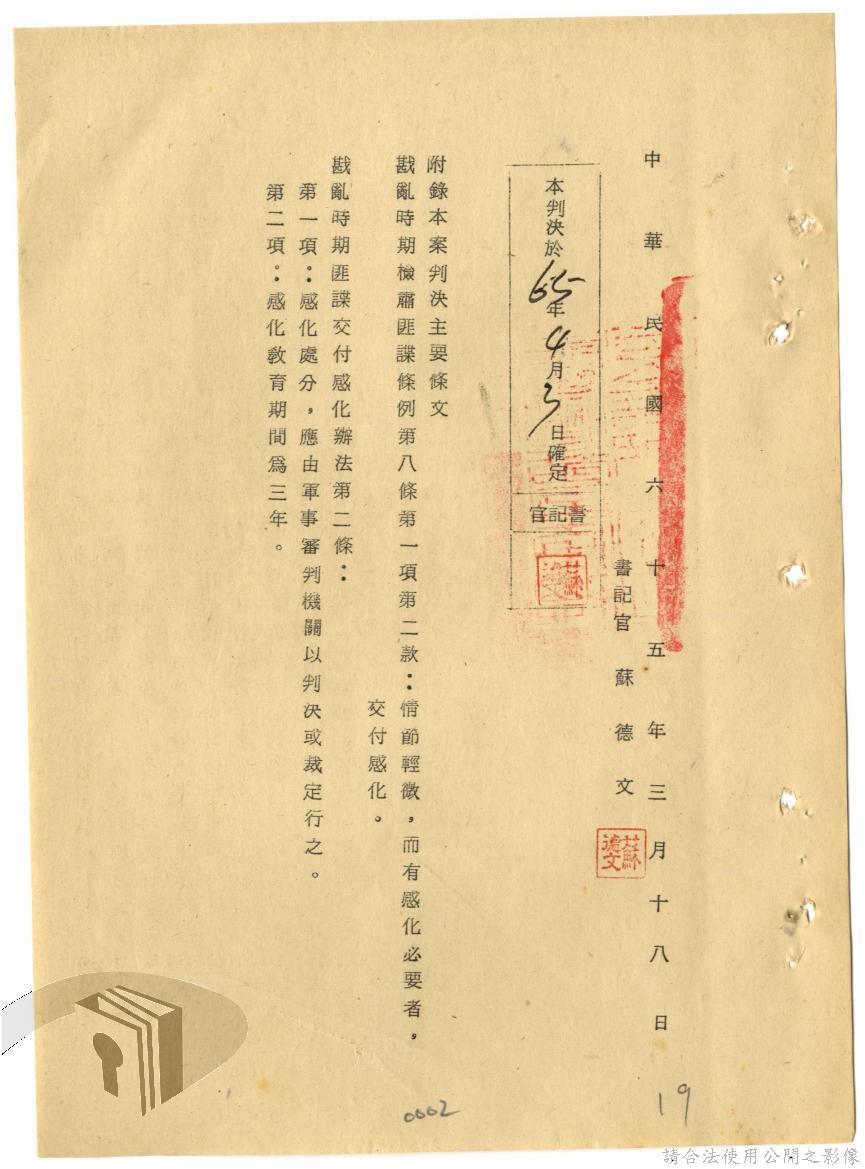 中華民國六十五年三月十八日
書記官 蘇德文
蘇德文
本判決於65年4月3日確定
書記官
附錄本案判決主要條文
戡亂時期檢肅匪諜條例第八條第一項第二款：情節輕微，而有感化必要者，
交付感化。
戡亂時期匪諜交付感化辦法第二條：
第一項：感化處分，應由軍事審判機關以判決或裁定行之。
第二項：感化教育期間為三年。
0002
19
請合法使用公開之影像